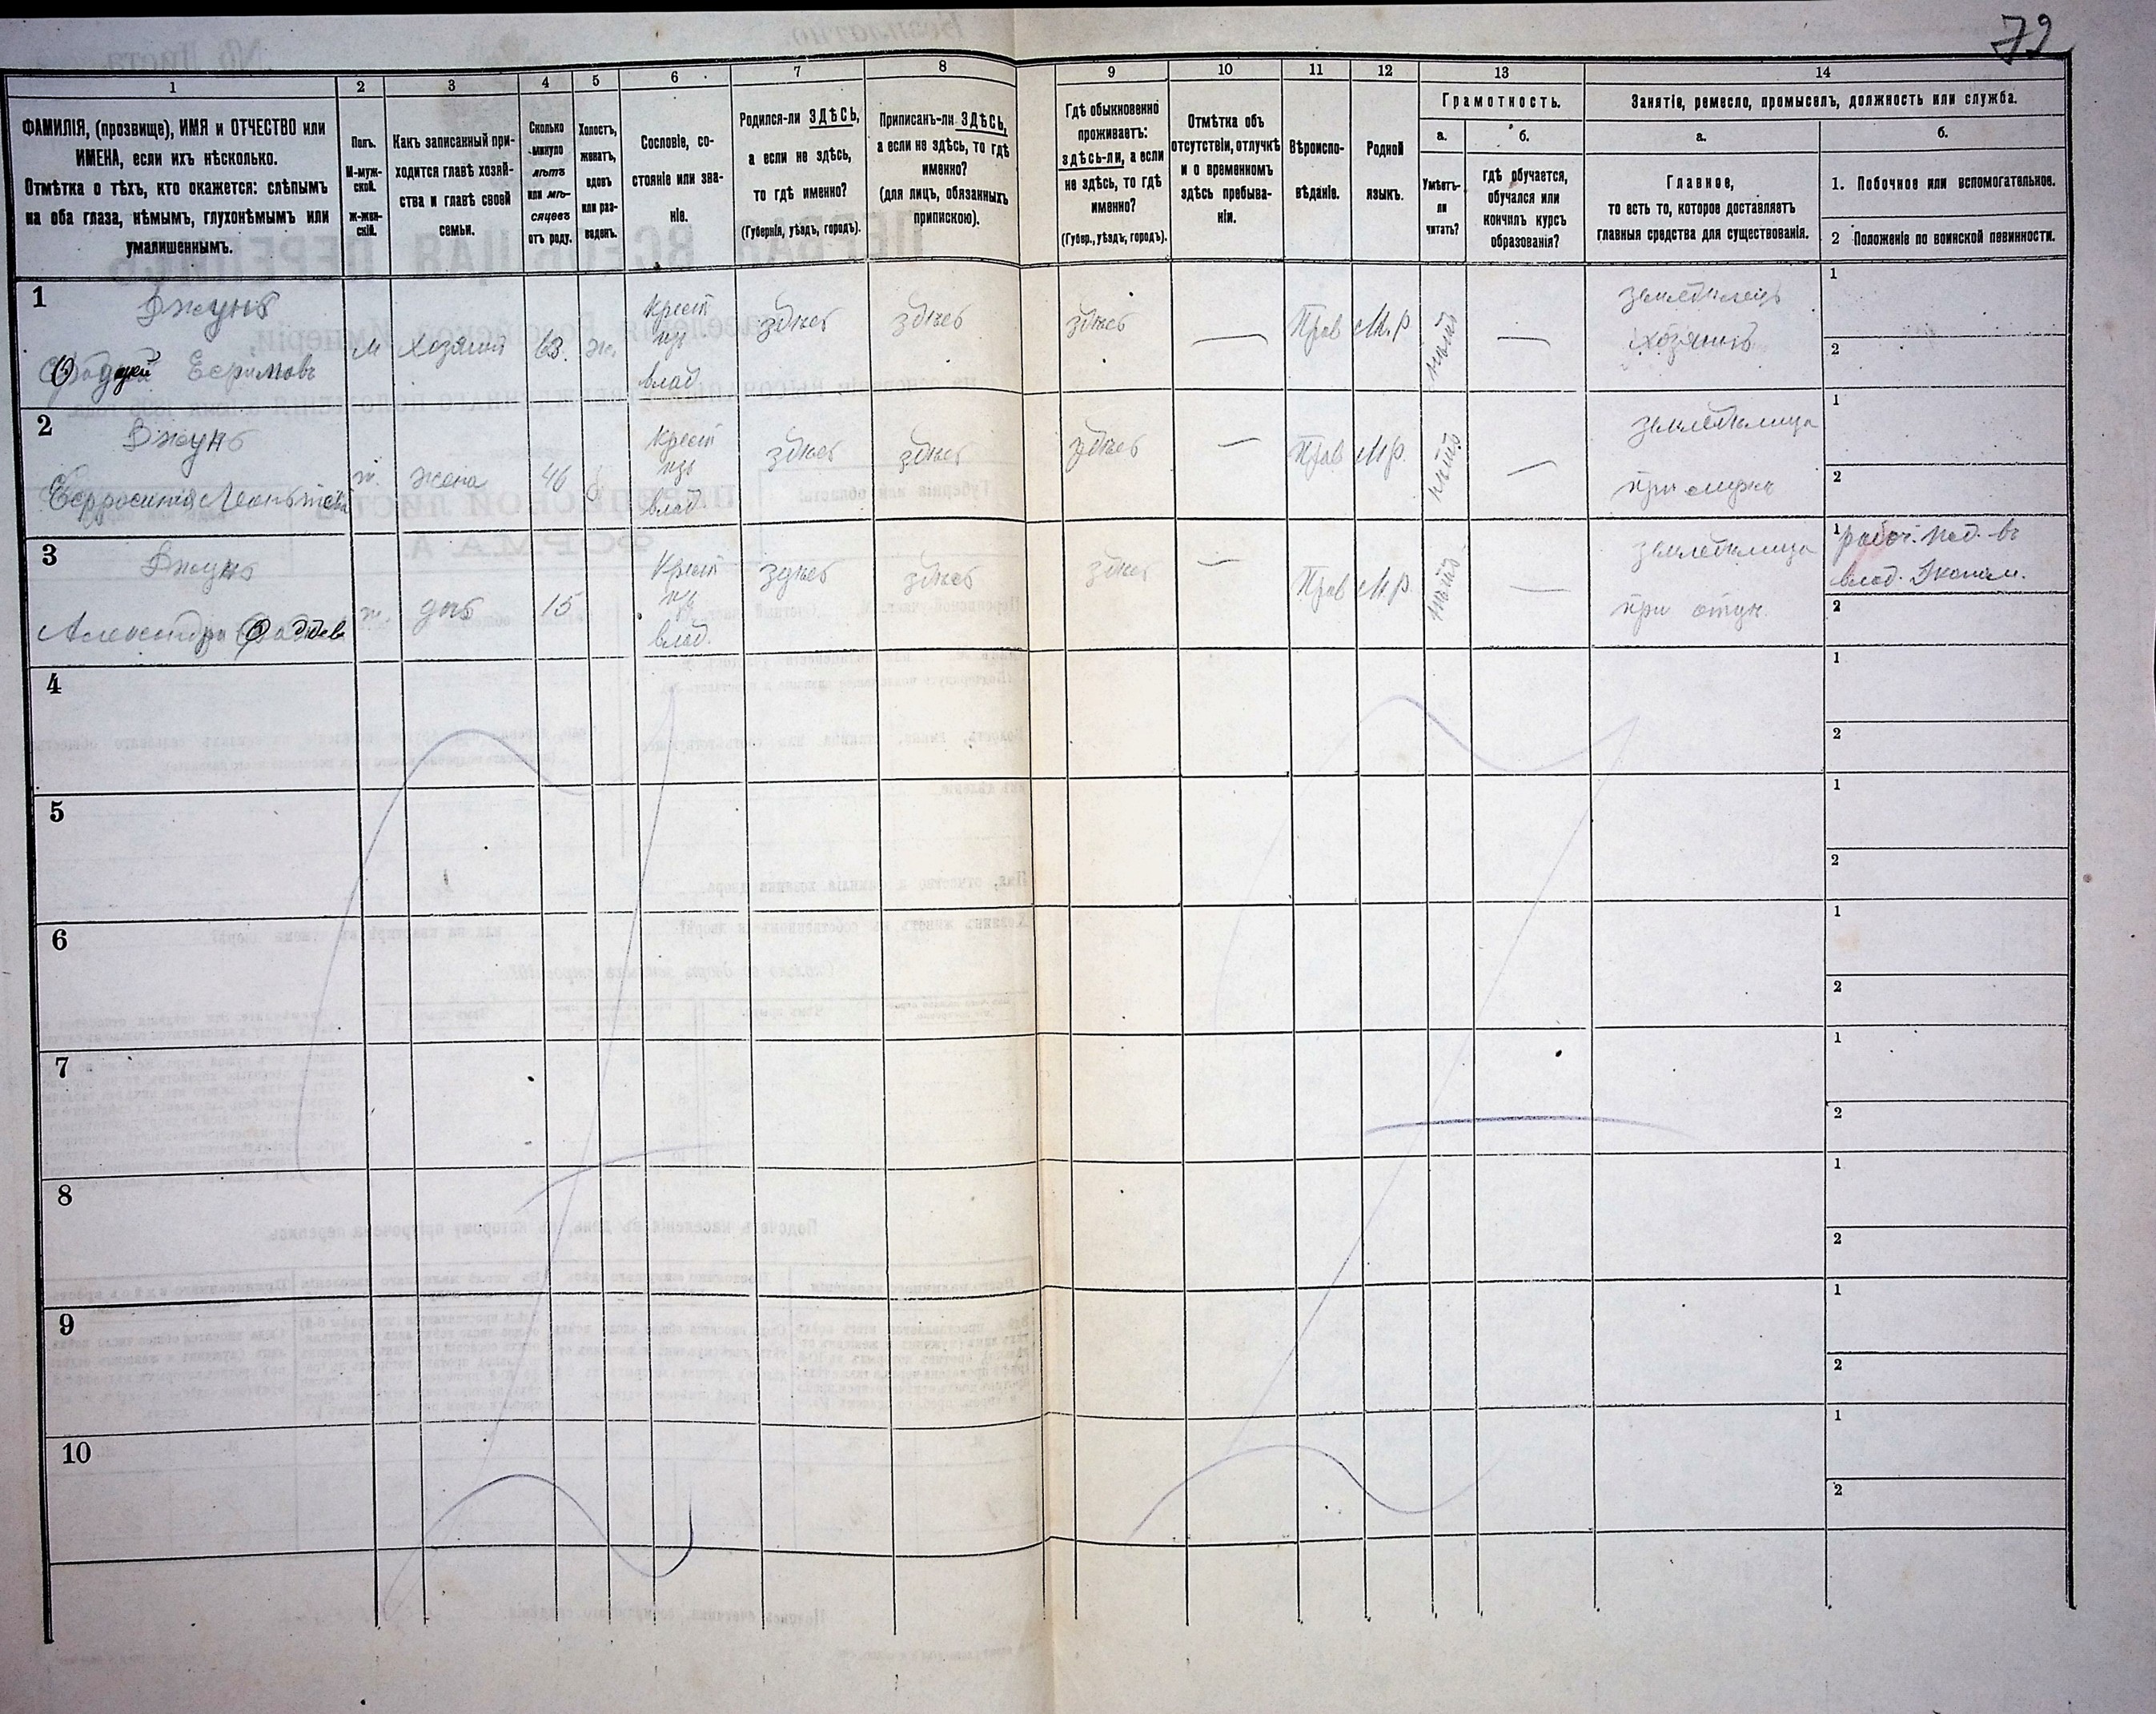 72
1 2 3 4 5 6 7 8 9 10 11 12 13 14
ФАМИЛІЯ, (прозвище), ИМЯ и ОТЧЕСТВО или
ИМЕНА, если ихъ нѣсколько.
Отмѣтка о тѣхъ, кто окажется: слѣпымъ
на оба глаза, нѣмымъ, глухонѣмымъ или
умалишеннымъ.
Полъ.
М-муж-
ской.
ж-жен-
скій.
Какъ записанный при-
ходится главѣ хозяй-
ства и главѣ своей
семьи.
Сколько
минуло
лѣтъ
или мѣ-
сяцевъ
отъ роду.
Холостъ,
женатъ,
вдовъ
или раз-
веденъ.
Сословіе, со-
стояніе или зва-
ніе.
Родился-ли ЗДѢСЬ,
а если не здѣсь,
то гдѣ именно?
(Губернія, уѣздъ, городъ).
Приписанъ-ли ЗДѢСЬ,
а если не здѣсь, то гдѣ
именно?
(для лицъ, обязанныхъ
припискою).
Гдѣ обыкновенно
проживаетъ:
здѣсь-ли, а если
не здѣсь, то гдѣ
именно?
(Губер., уѣздъ, городъ).
Отмѣтка объ
отсутствіи, отлучкѣ
и о временномъ
здѣсь пребыва-
ніи.
Вѣроиспо-
вѣданіе.
Родной
языкъ.
Грамотность.
а.
Умѣетъ-
ли
читать?
б.
гдѣ обучается,
обучался или
кончилъ курсъ
образованія?
Занятіе, ремесло, промыселъ, должность или служба.
а.
Главное,
то есть то, которое доставляетъ
главныя средства для существованія.
б.
1. Побочное или вспомогательное.
2 Положеніе по воинской повинности.
1
Вжунъ
Ефимовъ
м
хозяинъ
63.
ж.
Крест
изъ
влад
здѣсь
здѣсь
здѣсь
—
Прав
М.р
нѣтъ
—
земледѣлецъ
хозяинъ
1
2
2
Вжунъ
ж.
жена
46
Крест
изъ
влад
здѣсь
здѣсь
здѣсь
—
Прав
М.р.
нѣтъ
—
земледѣлица
при мужѣ
1
2
3
Вжунъ
ж.
дочь
15
Крест
изъ
влад.
здѣсь
здѣсь
здѣсь
—
Прав
М.р.
нѣтъ
—
земледѣлица
при отцѣ.
1 рабоч. под. въ
влад. Эконом.
2
4
1
2
5
1
2
6
1
2
7
1
2
8
1
2
9
1
2
10
1
2